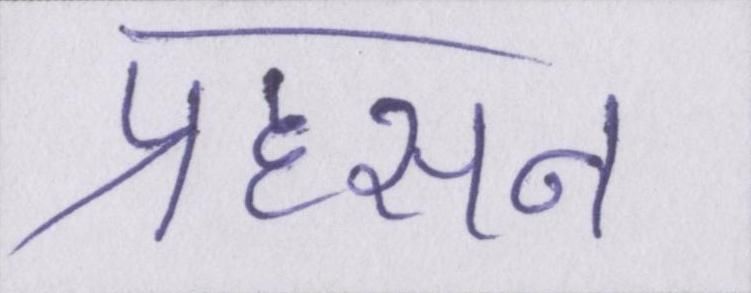 प्रहसन